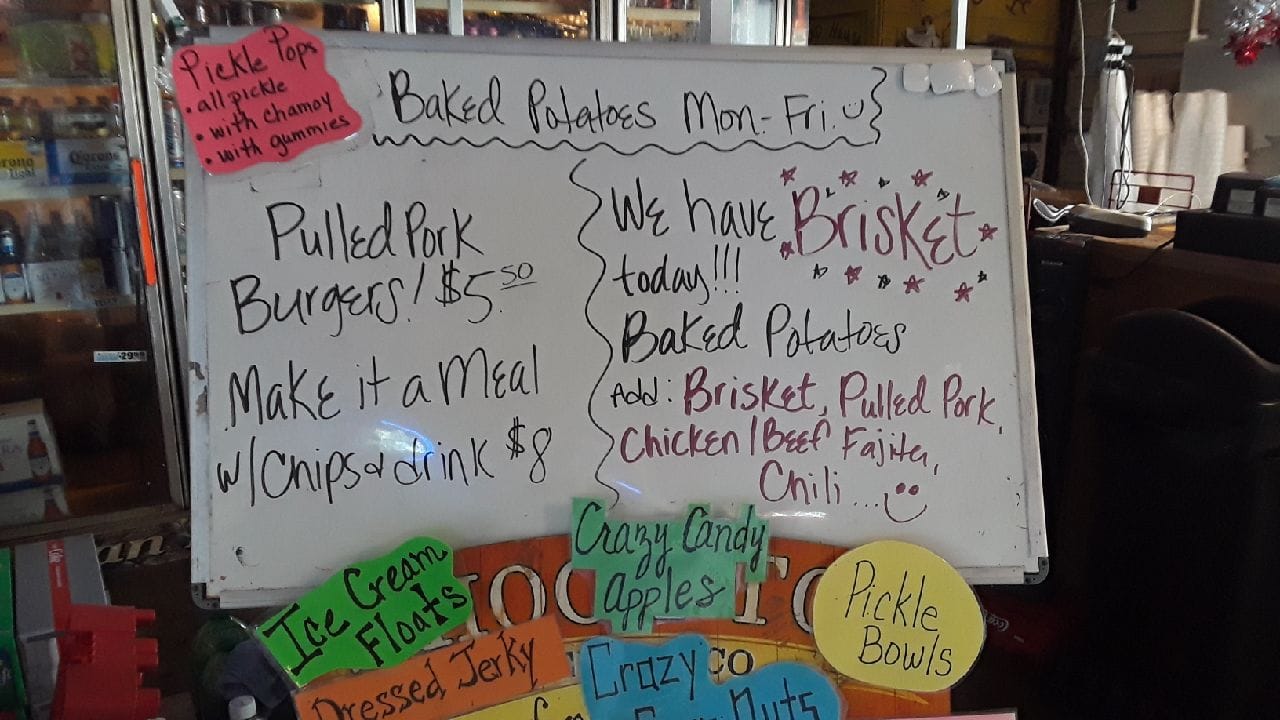 Pickle Pops
• all pickle
• with chamoy
• with gummies
Baked Potatoes Mon-Fri.
Pulled Pork
Burgers! $5.50
Make it a Meal
w/Chips & drink $8
We have Brisket
today!!!
Baked Potatoes
Add: Brisket, Pulled Pork,
Chicken/Beef Fajita,
Chili...
Ice Cream
Floats
Crazy Candy
Apples
Pickle
Bowls
Dressed Jerky
Crazy
Nuts
CO
Corona
Light